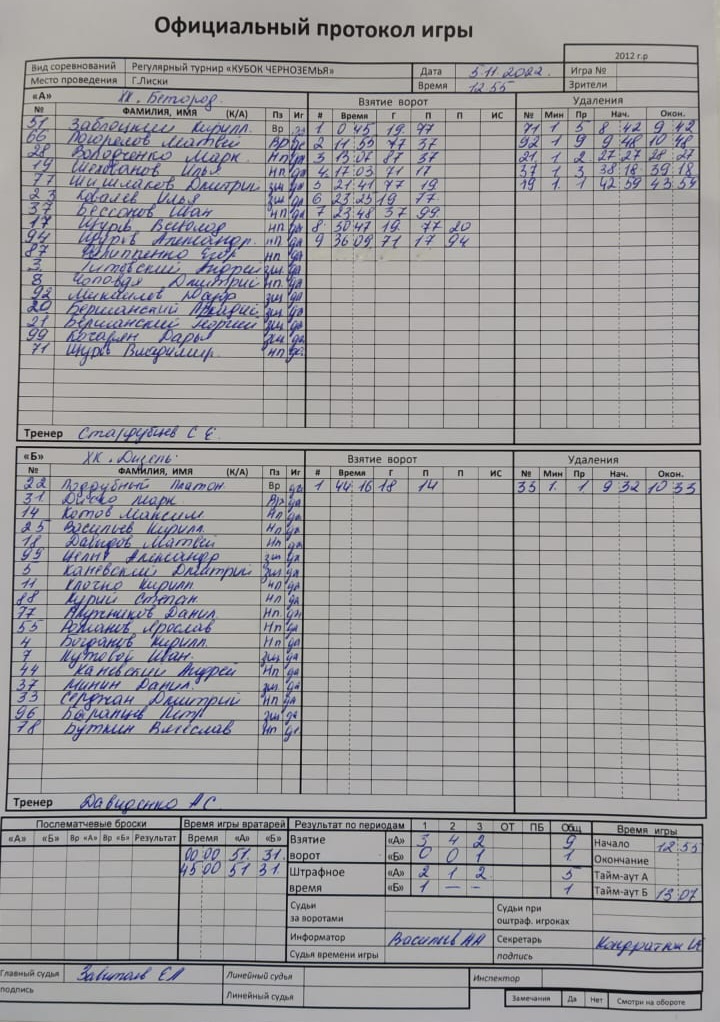 Официальный протокол игры
2012 г.р
Вид соревнований Регулярный турнир «КУБОК ЧЕРНОЗЕМЬЯ» Дата 5.11.2022. Игра №
Место проведения Г.Лиски Время 12 55 Зрители
«А» ХК. Белгород. Взятие ворот Удаления
№ ФАМИЛИЯ, ИМЯ (К/А) Пз Иг # Время Г П П ИС № Мин Пр Нач. Окон.
51 Кирилл. Вр да 1 0 45 19 77 71 1 5 8 42 9 42
66 Погорелов Матвей Вр да 2 11 55 77 37 92 1 9 9 48 10 48
28 Володченко Марк. Нп да 3 13 07 87 37 21 1 2 27 27 28 27
19 Шелванов Илья нп да 4 17 03 71 17 37 1 3 38 18 39 18
77 Шишлаков Дмитрий зщ да 5 21 41 77 19 19 1 1 42 59 43 59
23 Ковалев Илья зщ да 6 23 25 19 77
37 Бессонов Иван нп да 7 23 48 37 99
17 Щурв Всеволод нп да 8 30 47 19 77 20
94 Щурв Александр. нп да 9 36 09 71 17 94
87 Филиппенко Егор нп да
3 Литовский Андрей зщ да
8 Чоповдя Дмитрий нп да
92 Михайлов зщ да
20 Бершанский зщ да
21 Бершанский зщ да
99 Кочарян Дарья зщ да
71 Щурв Владимир. нп да
Тренер Стародубцев С Е.
«Б» ХК. Дизель. Взятие ворот Удаления
№ ФАМИЛИЯ, ИМЯ (К/А) Пз Иг # Время Г П П ИС № Мин Пр Нач. Окон.
22 Поддубный Платон. Вр да 1 44 16 18 14 33 1 1 9 32 10 33
31 Марк Вр да
14 Котов Максим Нп да
25 Васильев Кирилл. Нп да
18 Давидов Матвей Нп да
99 Александр зщ да
5 Каневский Дмитрий зщ да
11 Клочко Кирилл нп да
88 Курий Степан нп да
77 Данил Нп да
55 Романов Ярослав Нп да
4 Богданов Кирилл. Нп да
7 Кутовой Иван. зщ да
44 Каневский Андрей Нп да
37 Минин Данил. зщ да
33 Сержан Дмитрий Нп да
96 Баранцев Петр зщ да
78 Буткин Вячеслав Нп да
Тренер Давиденко А С.
Послематчевые броски Время игры вратарей Результат по периодам 1 2 3 ОТ ПБ Общ Время игры
«А» «Б» Вр «А» Вр «Б» Результат Время «А» «Б»
Взятие ворот «А» 3 4 2 9 Начало 12 55
00 00 51. 31. «Б» 0 0 1 1. Окончание
45 00 51 31. Штрафное время «А» 2 1 2 5 Тайм-аут А
«Б» 1 — — 1 Тайм-аут Б 13 07
Судьи за воротами Судьи при оштраф. игроках
Информатор Васильев АА Секретарь
Судья времени игры подпись
Главный судья Линейный судья Инспектор
подпись Линейный судья Замечания Да Нет Смотри на обороте